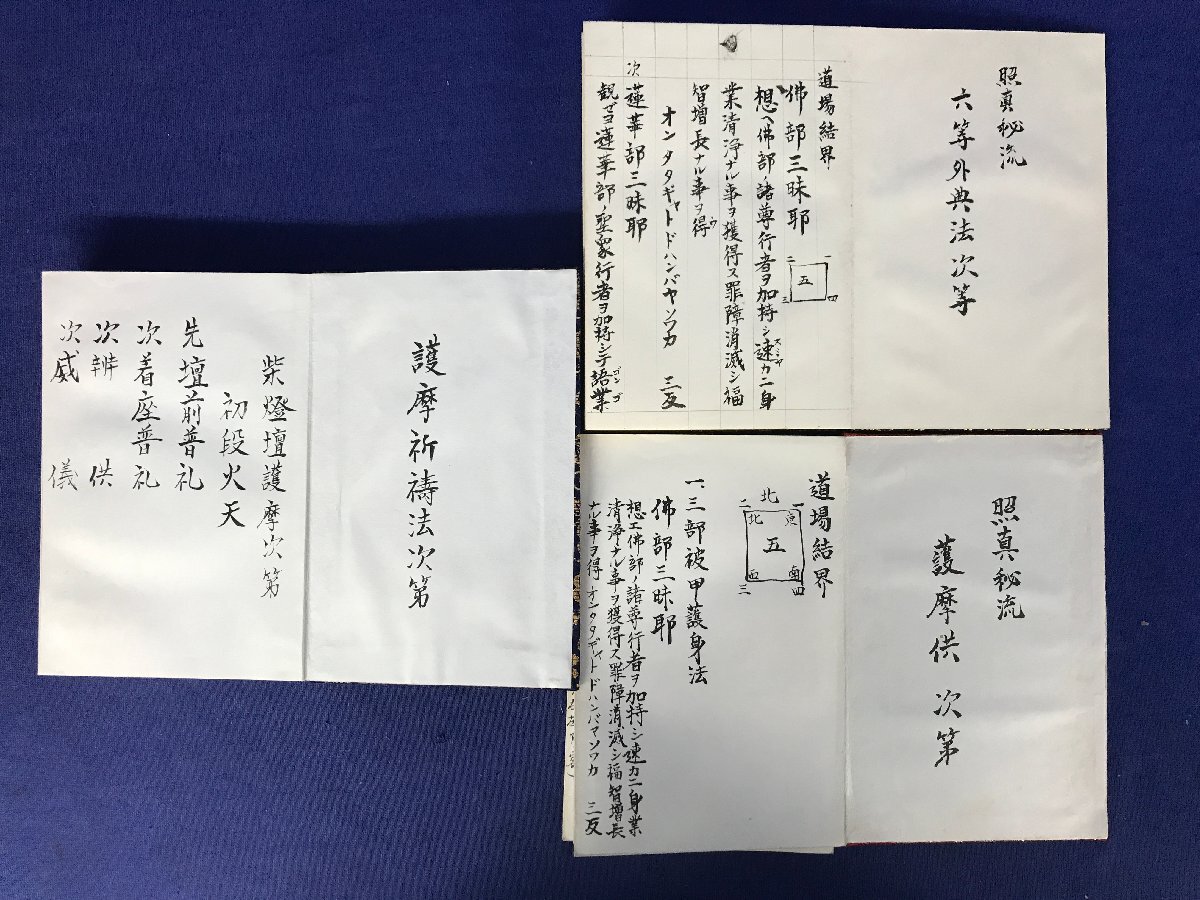 照真秘流
六等外典法次等
道場結界
一
二
三
四
五
佛部三昧耶
想ヘ佛部ノ諸尊行者ヲ加持シ速カニ身
業清浄ナル事ヲ獲得ス罪障消滅シ福
智増長ナル事ヲ得
オンタタギャトドハンバヤソワカ 三反
次 蓮華部三昧耶
観ゼヨ蓮華部ノ聖衆行者ヲ加持シテ語業
照真秘流
護摩供次第
道場結界
北
一
二
三
四
東
北
五
西
南
一、三部被甲護身法
佛部三昧耶
想エ佛部ノ諸尊行者ヲ加持シ速カニ身業
清浄ナル事ヲ獲得ス罪障消滅シ福智増長
ナル事ヲ得 オンタタギャトドハンバヤソワカ 三反
護摩祈禱法次第
柴燈壇護摩次第
初段火天
先壇前普礼
次着座普礼
次辨供
次威儀